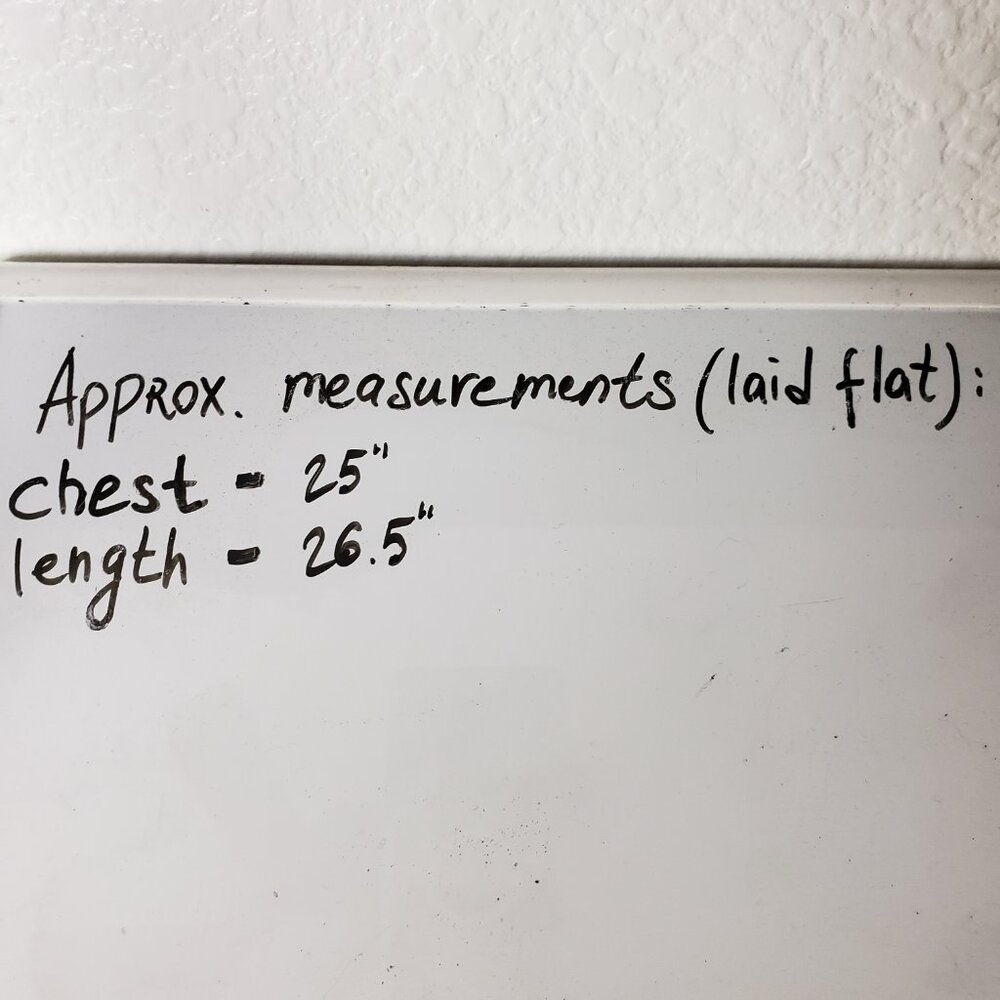 Approx. measurements (laid flat):
chest - 25"
length - 26.5"